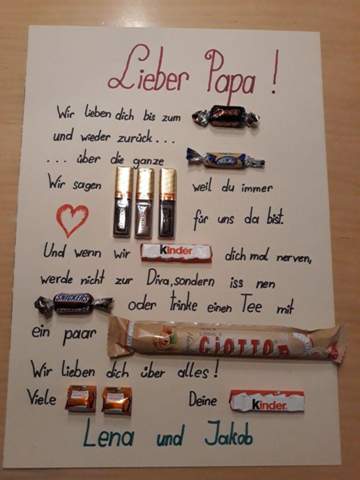 Lieber Papa !
Wir lieben dich bis zum
und wieder zurück...
... über die ganze
Wir sagen weil du immer
für uns da bist.
Und wenn wir kinder dich mal nerven,
werde nicht zur Diva, sondern iss nen
SNICKERS oder trinke einen Tee mit
ein paar GIOTTO
Wir lieben dich über alles!
Viele Deine kinder
Lena und Jakob